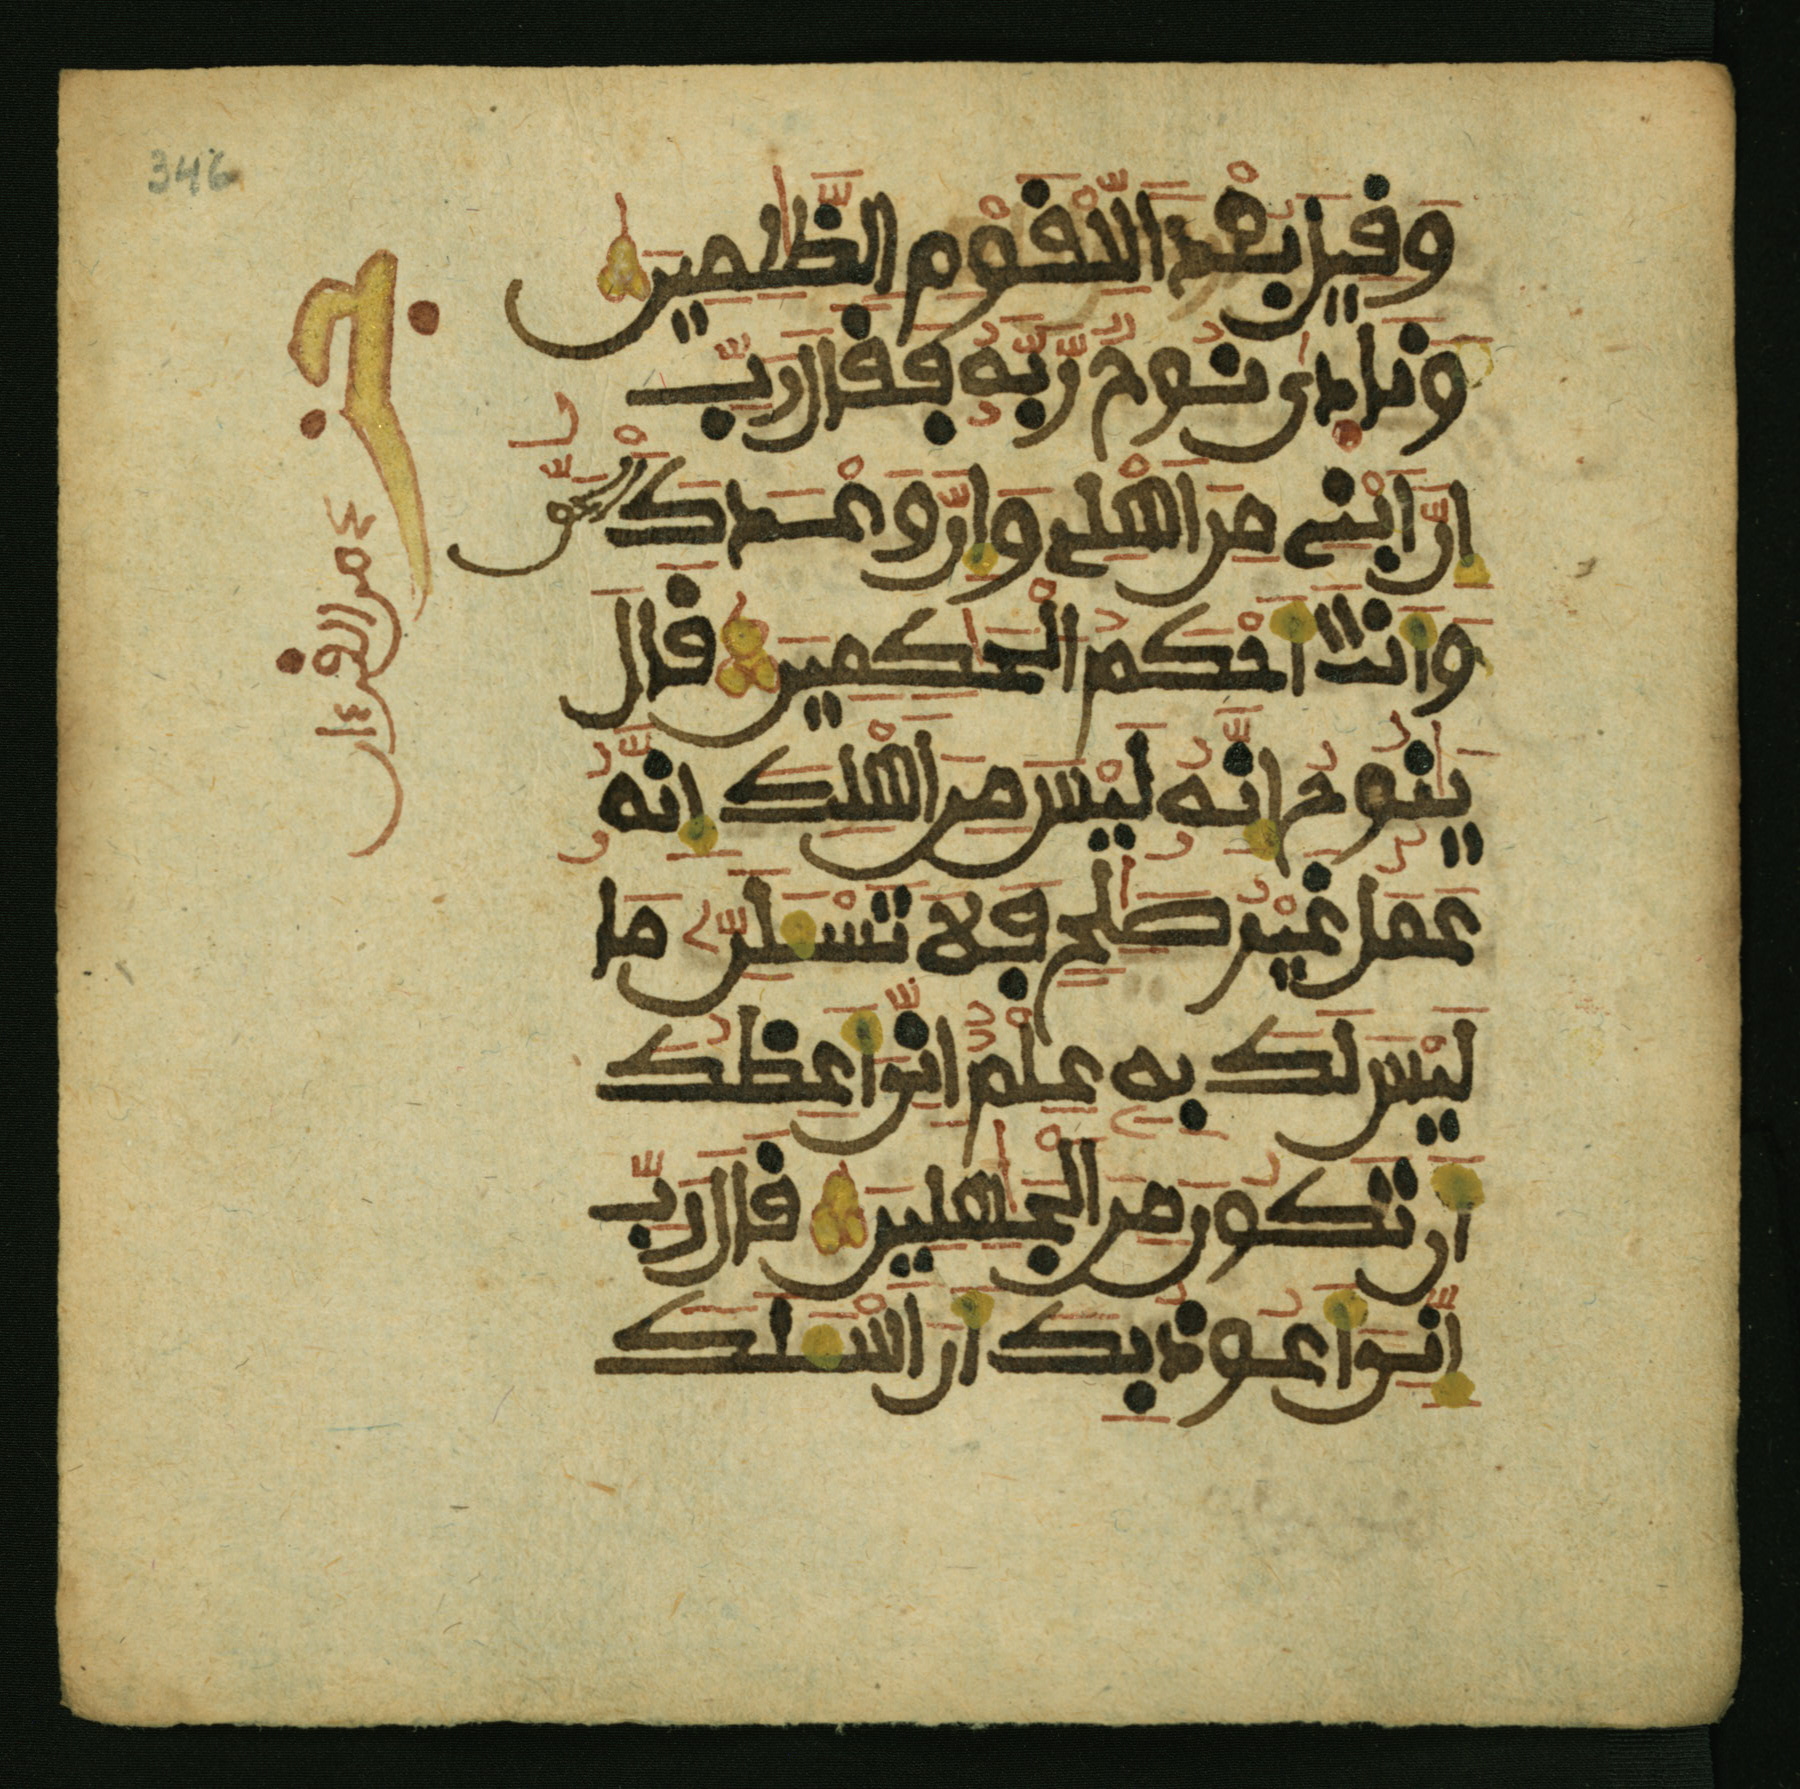 346
وَقِيلَ بُعْدًا لِّلْقَوْمِ الظَّٰلِمِينَ
وَنَادَىٰ نُوحٌ رَّبَّهُۥ فَقَالَ رَبِّ
إِنَّ ابْنِي مِنَ اهْلِي وَإِنَّ وَعْدَكَ الْحَقُّ
وَأَنتَ أَحْكَمُ الْحَٰكِمِينَ قَالَ
يَٰنُوحُ إِنَّهُۥ لَيْسَ مِنَ اهْلِكَ إِنَّهُۥ
عَمَلٌ غَيْرُ صَٰلِحٍ فَلَا تَسْـَٔلَنِّ مَا
لَيْسَ لَكَ بِهِۦ عِلْمٌ اِنِّيَ أَعِظُكَ
أَن تَكُونَ مِنَ الْجَٰهِلِينَ قَالَ رَبِّ
إِنِّيَ أَعُوذُ بِكَ أَنَ اسْـَٔلَكَ
من القرءان